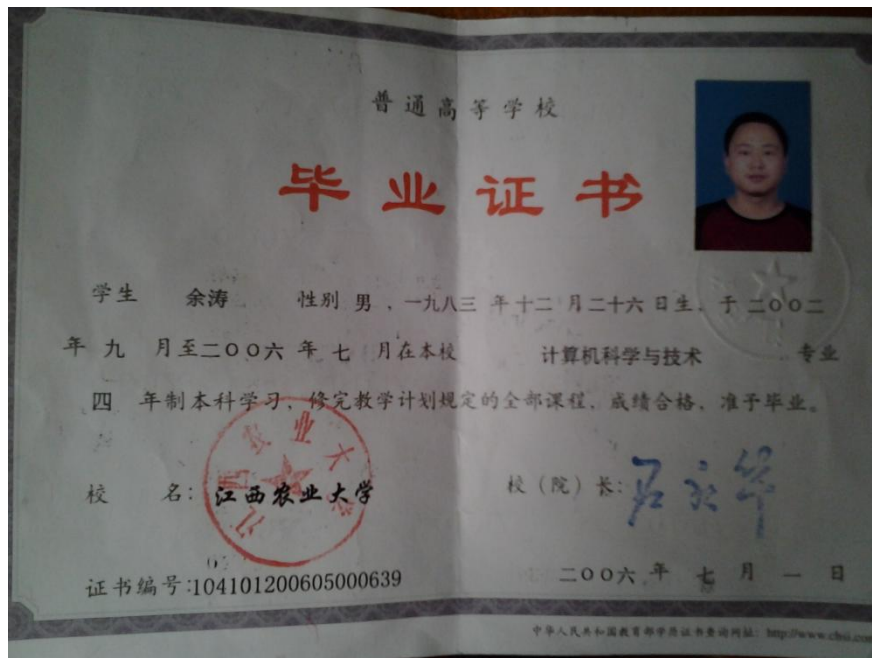 普通高等学校
毕业证书
学生 余涛 性别 男 ，一九八三 年 十二 月 二十六 日生，于 二〇〇二
年 九 月至 二〇〇六 年 七 月在本校 计算机科学与技术 专业
四 年制本科学习，修完教学计划规定的全部课程，成绩合格，准予毕业。
江西农业大学
校 名：江西农业大学 校（院）长：
证书编号:104101200605000639 二〇〇六 年 七 月 一 日
中华人民共和国教育部学历证书查询网址：http://www.chsi.com